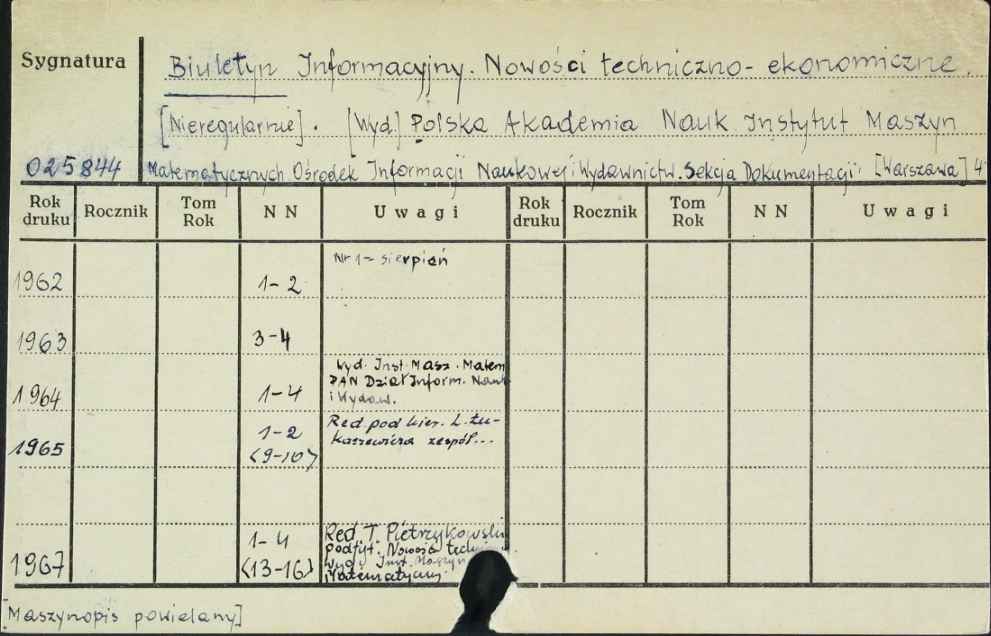 Sygnatura
Biuletyn Informacyjny. Nowości techniczno-ekonomiczne.
[Nieregularnie]. [Wyd.] Polska Akademia Nauk Instytut Maszyn
025844 Matematycznych. Ośrodek Informacji Naukowej i Wydawnictw. Sekcja Dokumentacji [Warszawa] 4°
Rok druku Rocznik Tom Rok N N Uwagi Rok druku Rocznik Tom Rok N N Uwagi
Nr 1 - sierpień
1962 1-2
1963 3-4
Wyd. Inst. Masz. Matem
PAN Dział Inform. Nauk
1964 1-4 i Wydaw.
Red. pod kier. L. Łu-
1965 1-2 kaszewicza zespół...
<9-10>
1-4 Red. T. Pietrzykowski
podtyt. Nowości techn
1967 <13-16> Wyd. Inst. Maszyn
Matematyczny
[Maszynopis powielany]